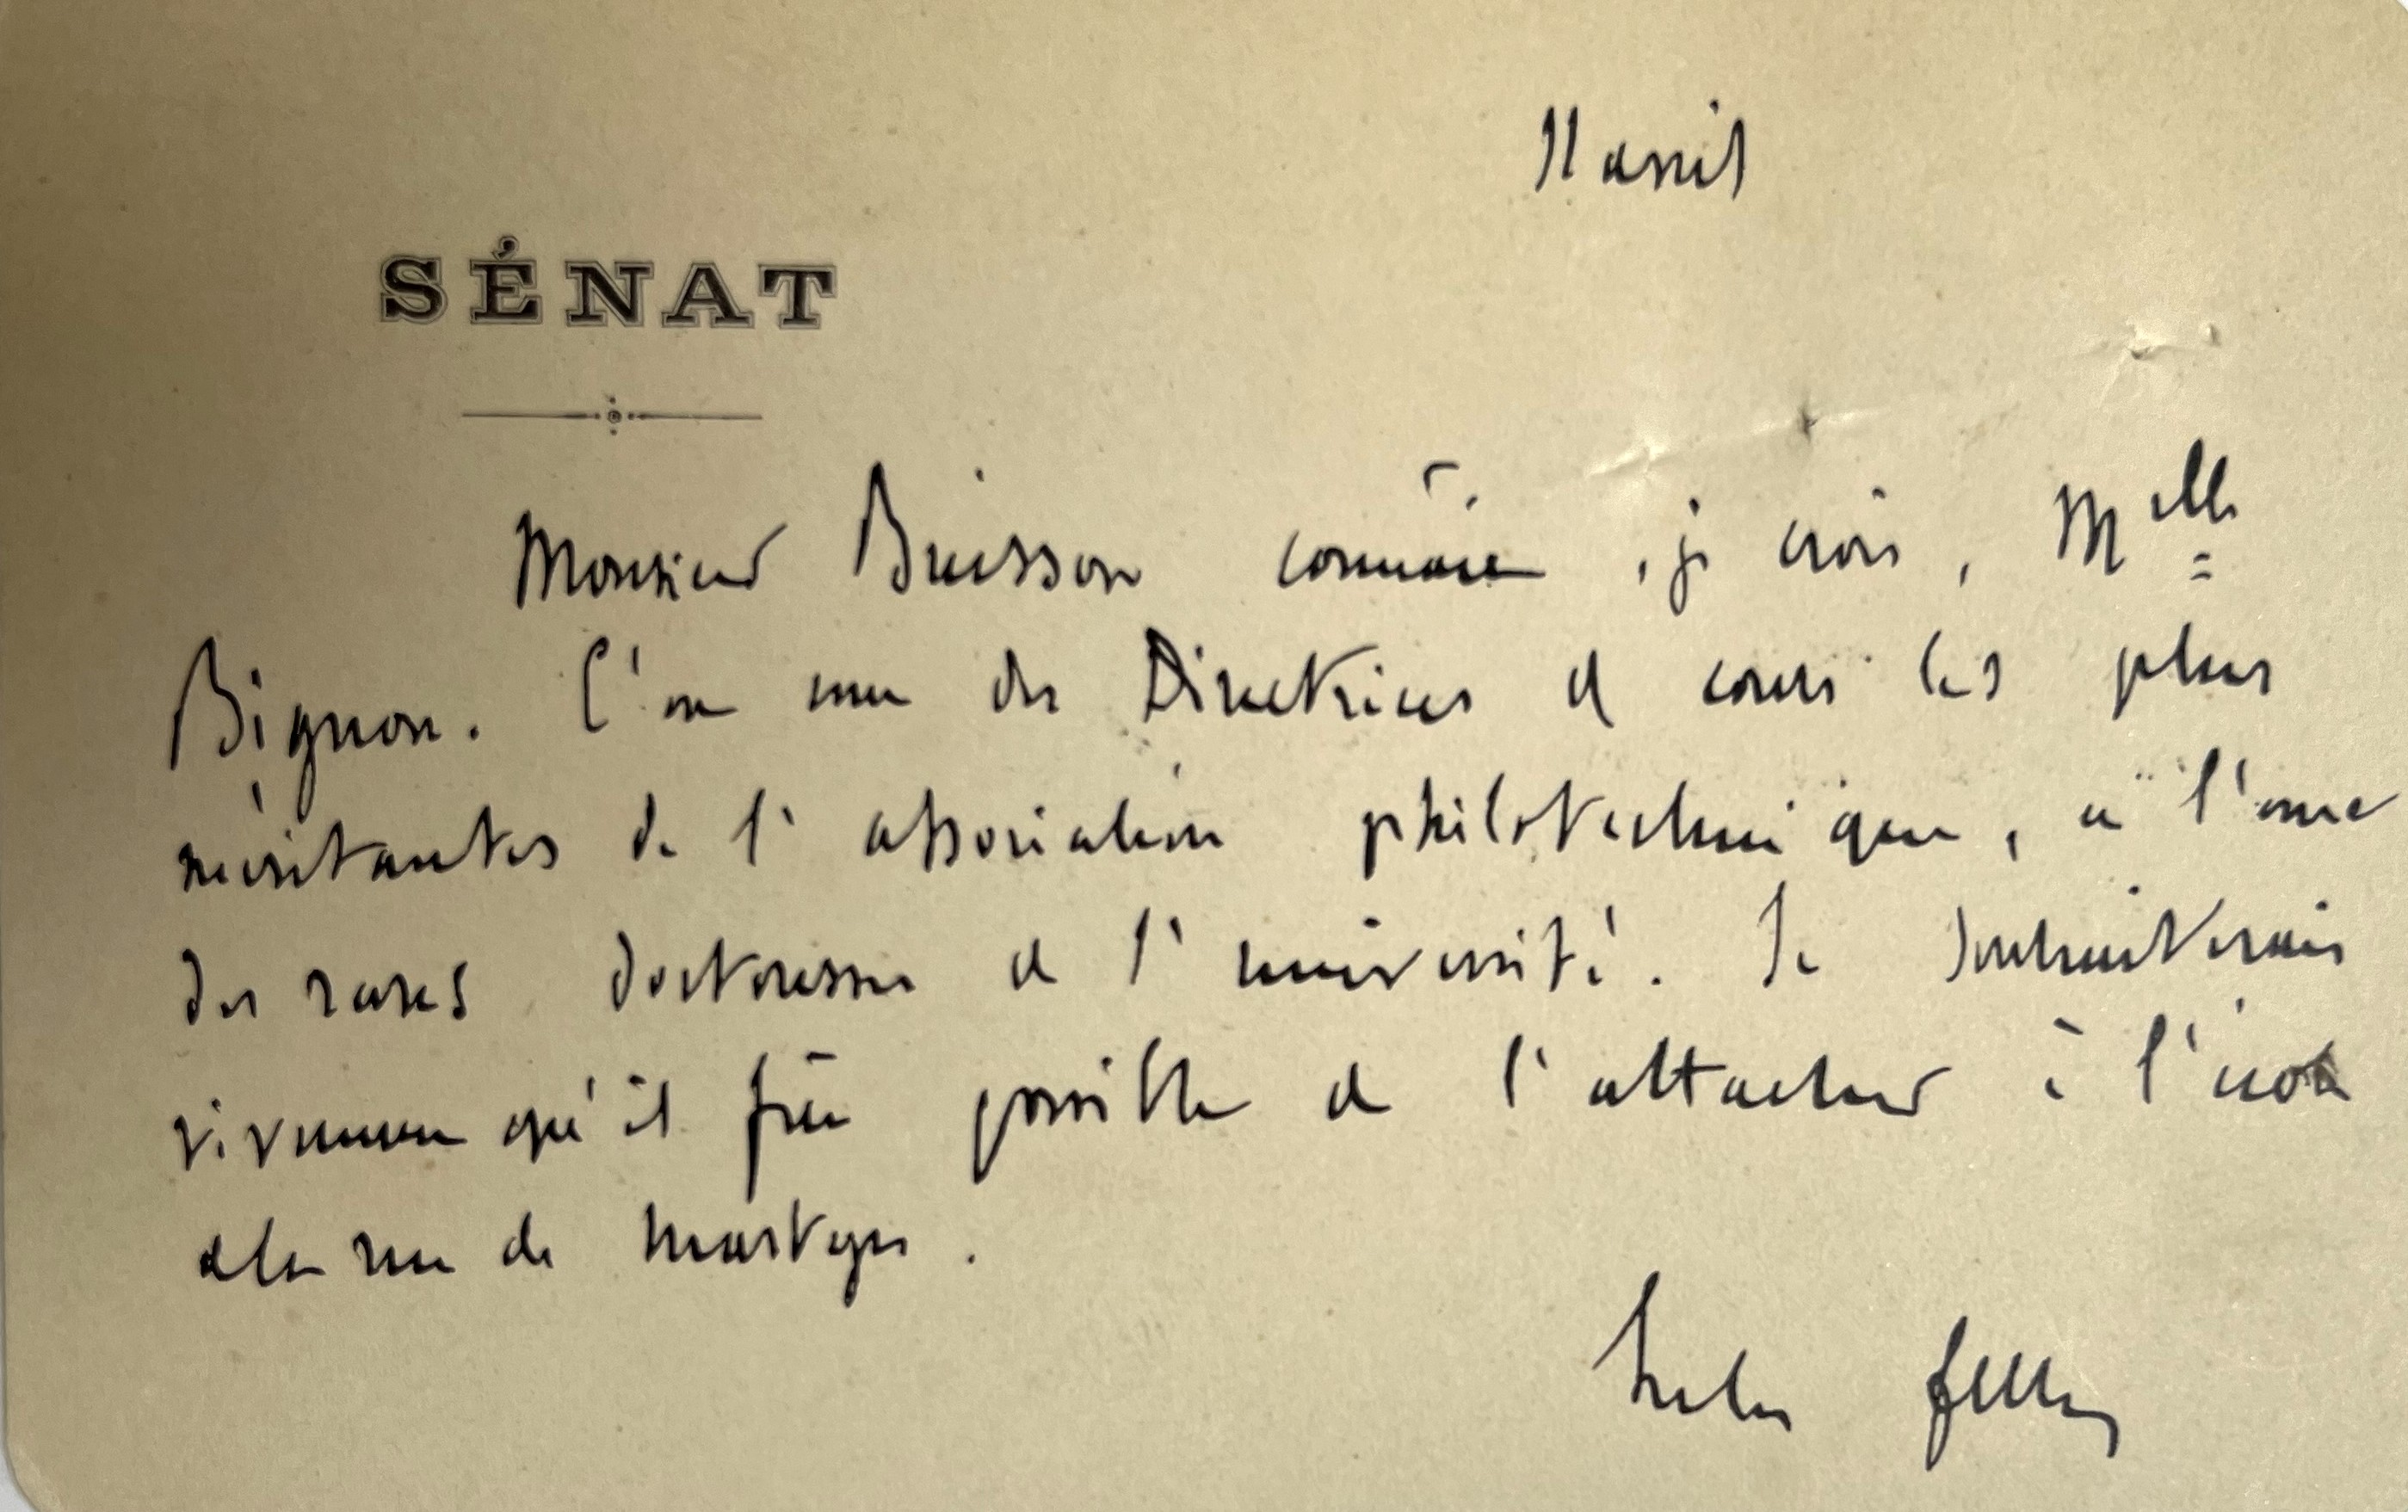 11 avril
SÉNAT
Monsieur Buisson connaît, je crois, Melle
Bignon. C'est une des Directrices de cours les plus
méritantes de l'association philotechnique, et l'une
des rares doctoresses de l'université. Je souhaiterais
vivement qu'il fût possible de l'attacher à l'école
de la rue des martyrs.
Jules Ferry